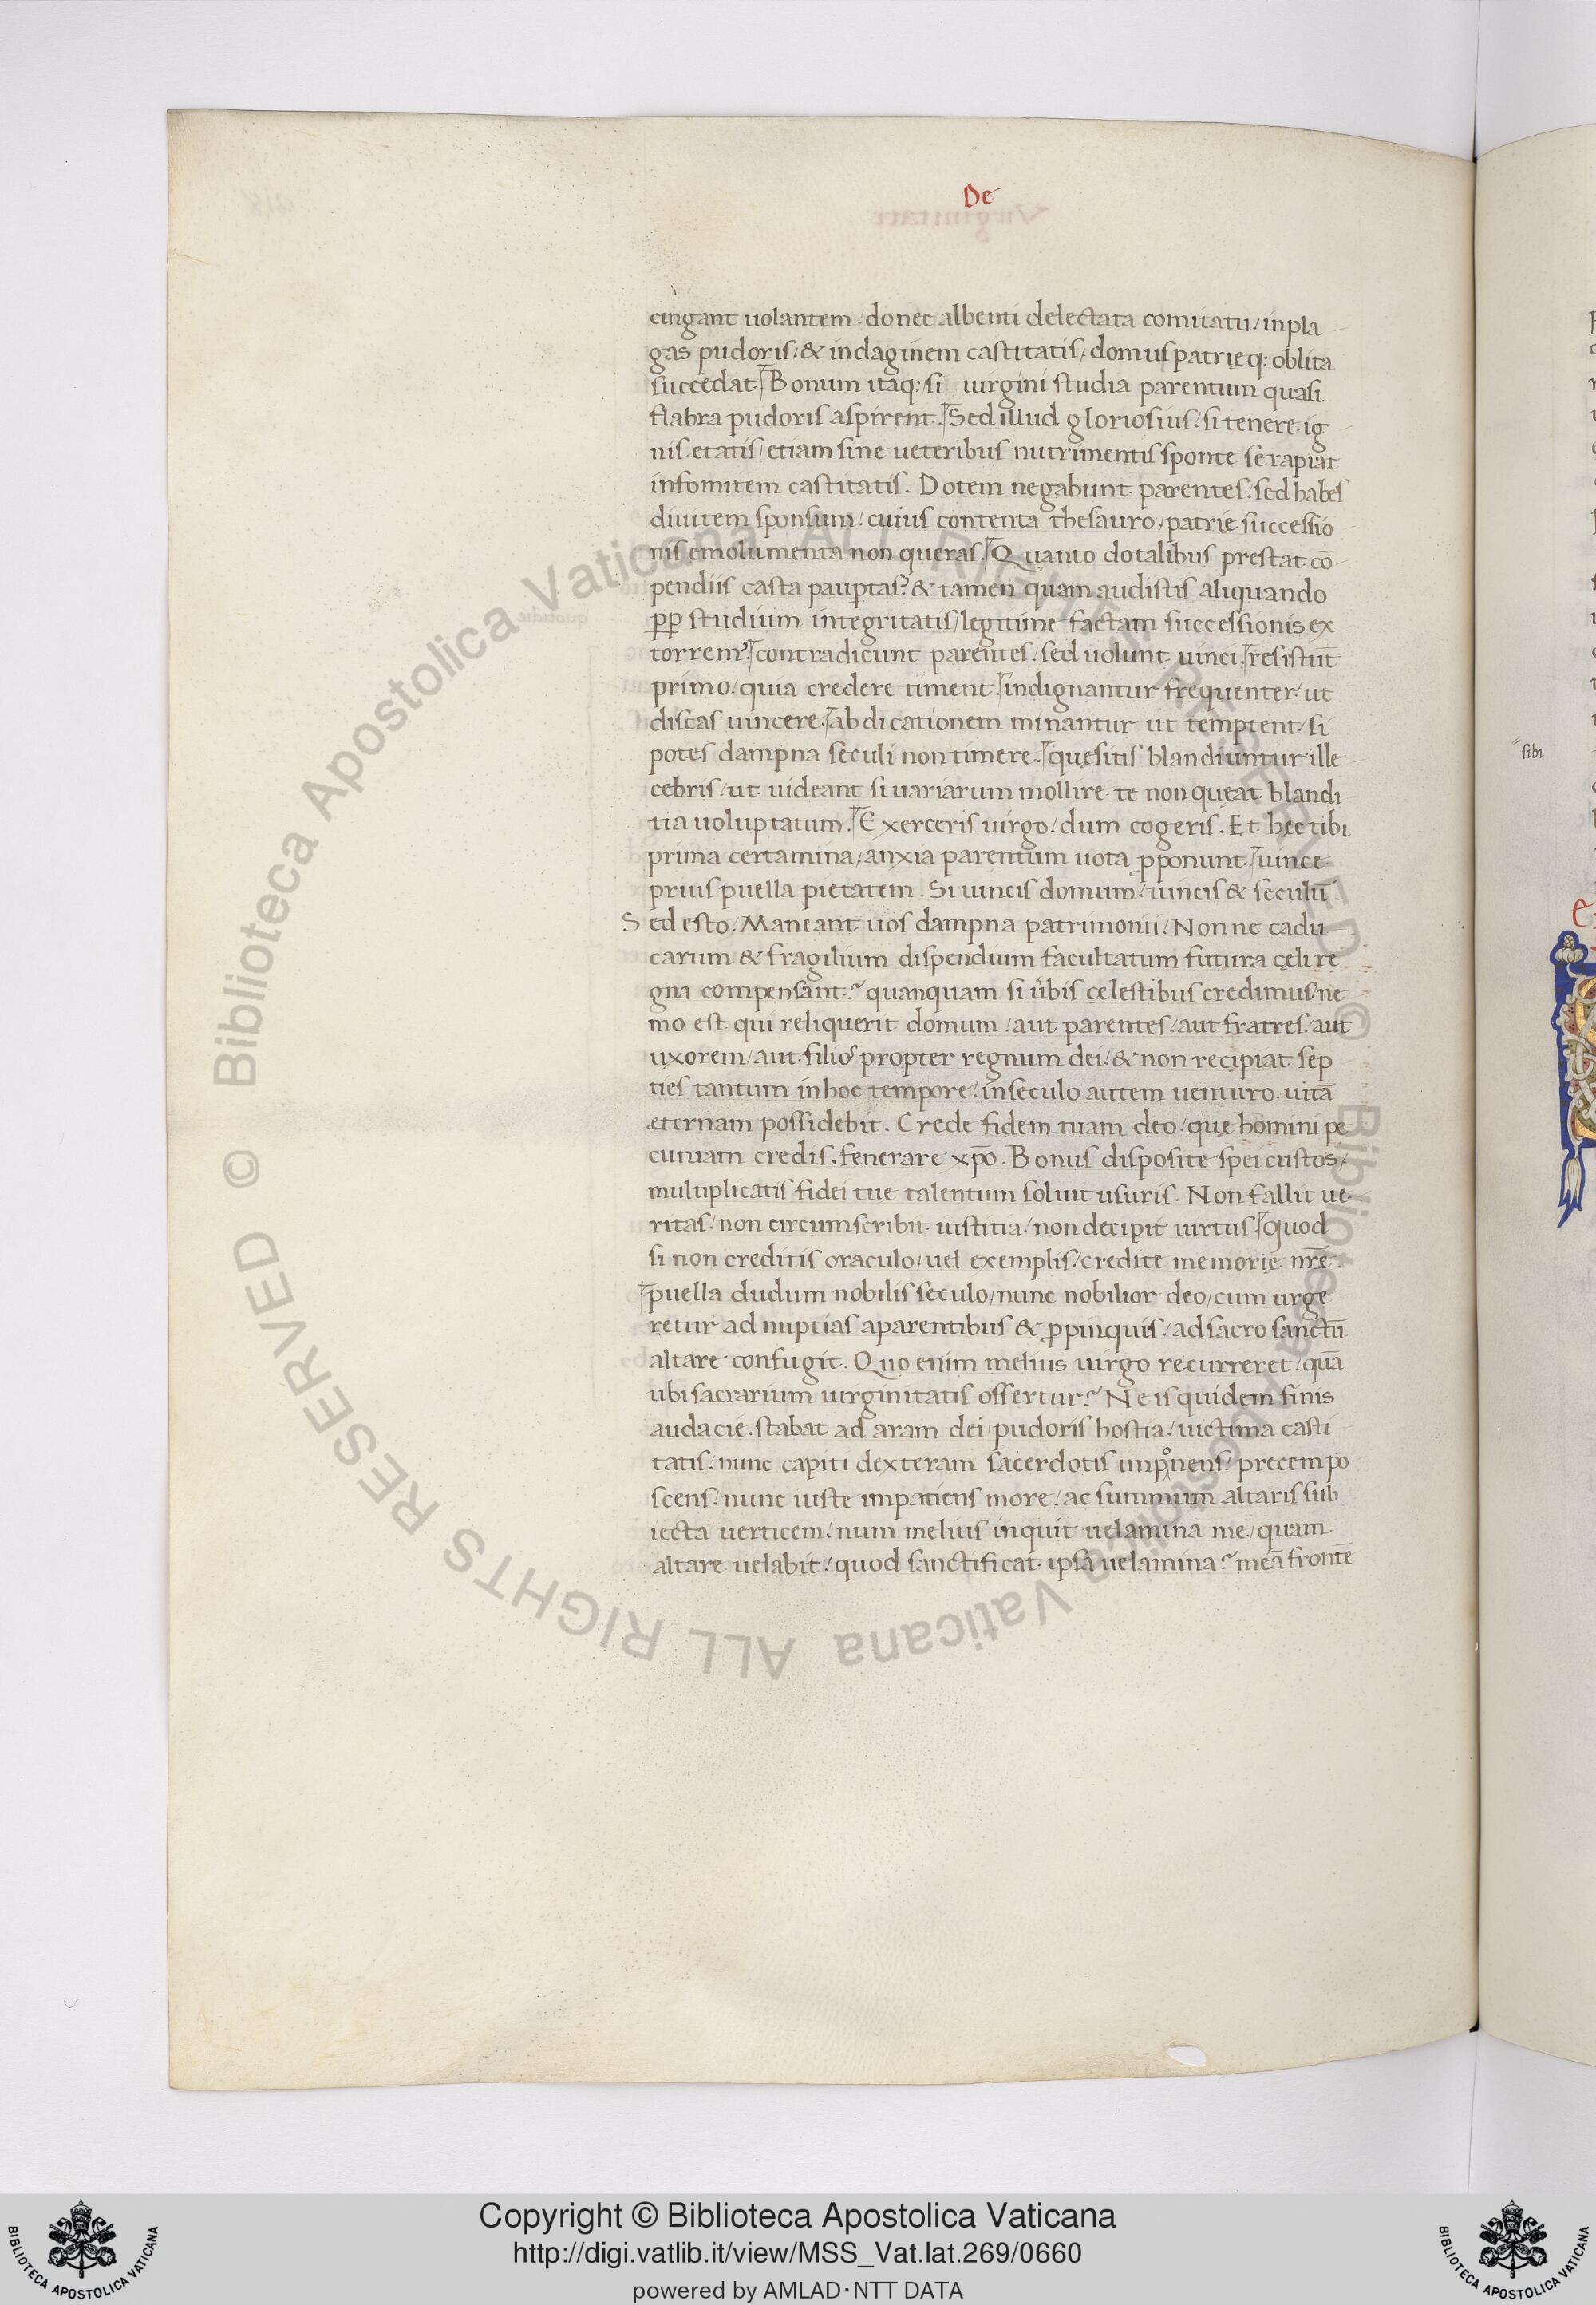 De
cingant uolantem / donec albenti delectata comitatu / in pla
gas pudoris / & indaginem castitatis / domus patrieq: oblita
succedat. Bonum itaq: si uirgini studia parentum quasi
flabra pudoris aspirent. Sed illud gloriosius / si tenere ig
nis etatis / etiam sine ueteribus nutrimentis sponte se rapiat
in fomitem castitatis. Dotem negabunt parentes / sed habes
diuitem sponsum / cuius contenta thesauro / patrie successio
nis emolumenta non queras. Quanto dotalibus prestat cō
pendiis casta paup̱tas? & tamen quam audistis aliquando
p̱p̱ studium integritatis / legitime factam successionis ex
torrem? contradicunt parentes / sed uolunt uinci. resistūt
primo / quia credere timent. indignantur frequenter / ut
discas uincere. abdicationem minantur ut temptent / si
potes dampna seculi non timere. quęsitis blandiuntur ille
cebris / ut uideant si uariarum mollire te non queat blandi
tia uoluptatum. Exerceris uirgo / dum cogeris. Et hec tibi
prima certamina / anxia parentum uota ꝓponunt. uince
prius puella pietatem. Si uincis domum / uincis & seculū.
Sed esto / Maneant uos dampna patrimonii / Nonne cadu
carum & fragilium dispendium facultatum futura cęli re
gna compensant? quanquam si ūbis celestibus credimus / ne
mo est qui reliquerit domum / aut parentes / aut fratres / aut
uxorem / aut filios propter regnum dei / & non recipiat sep
ties tantum in hoc tempore / in seculo autem uenturo uitā
æternam possidebit. Crede fidem tuam deo / que homini pe
cuniam credis. fenerare xp̄o. Bonus disposite spei custos /
multiplicatis fidei tue talentum soluit usuris. Non fallit ue
ritas / non circumscribit iustitia / non decipit uirtus. quod
si non creditis oraculo / uel exemplis / credite memorie nr̄e.
puella dudum nobilis seculo / nunc nobilior deo / cum urge
retur ad nuptias a parentibus & ꝓpinquis / ad sacro sanctū
altare confugit. Quo enim melius uirgo recurreret / quā
ubi sacrarium uirginitatis offertur? Ne is quidem finis
audacie. stabat ad aram dei pudoris hostia / uictima casti
tatis / nunc capiti dexteram sacerdotis imponens / precem po
scens / nunc iuste impatiens more / ac summum altaris sub
iecta uerticem / num melius inquit uelamina me / quam
altare uelabit / quod sanctificat ipsā uelamina? meā frontē
sibi
Copyright © Biblioteca Apostolica Vaticana
http://digi.vatlib.it/view/MSS_Vat.lat.269/0660
powered by AMLAD·NTT DATA
BIBLIOTECA APOSTOLICA VATICANA
BIBLIOTECA APOSTOLICA VATICANA
© Biblioteca Apostolica Vaticana ALL RIGHTS RESERVED © Biblioteca Apostolica Vaticana ALL RIGHTS RESERVED